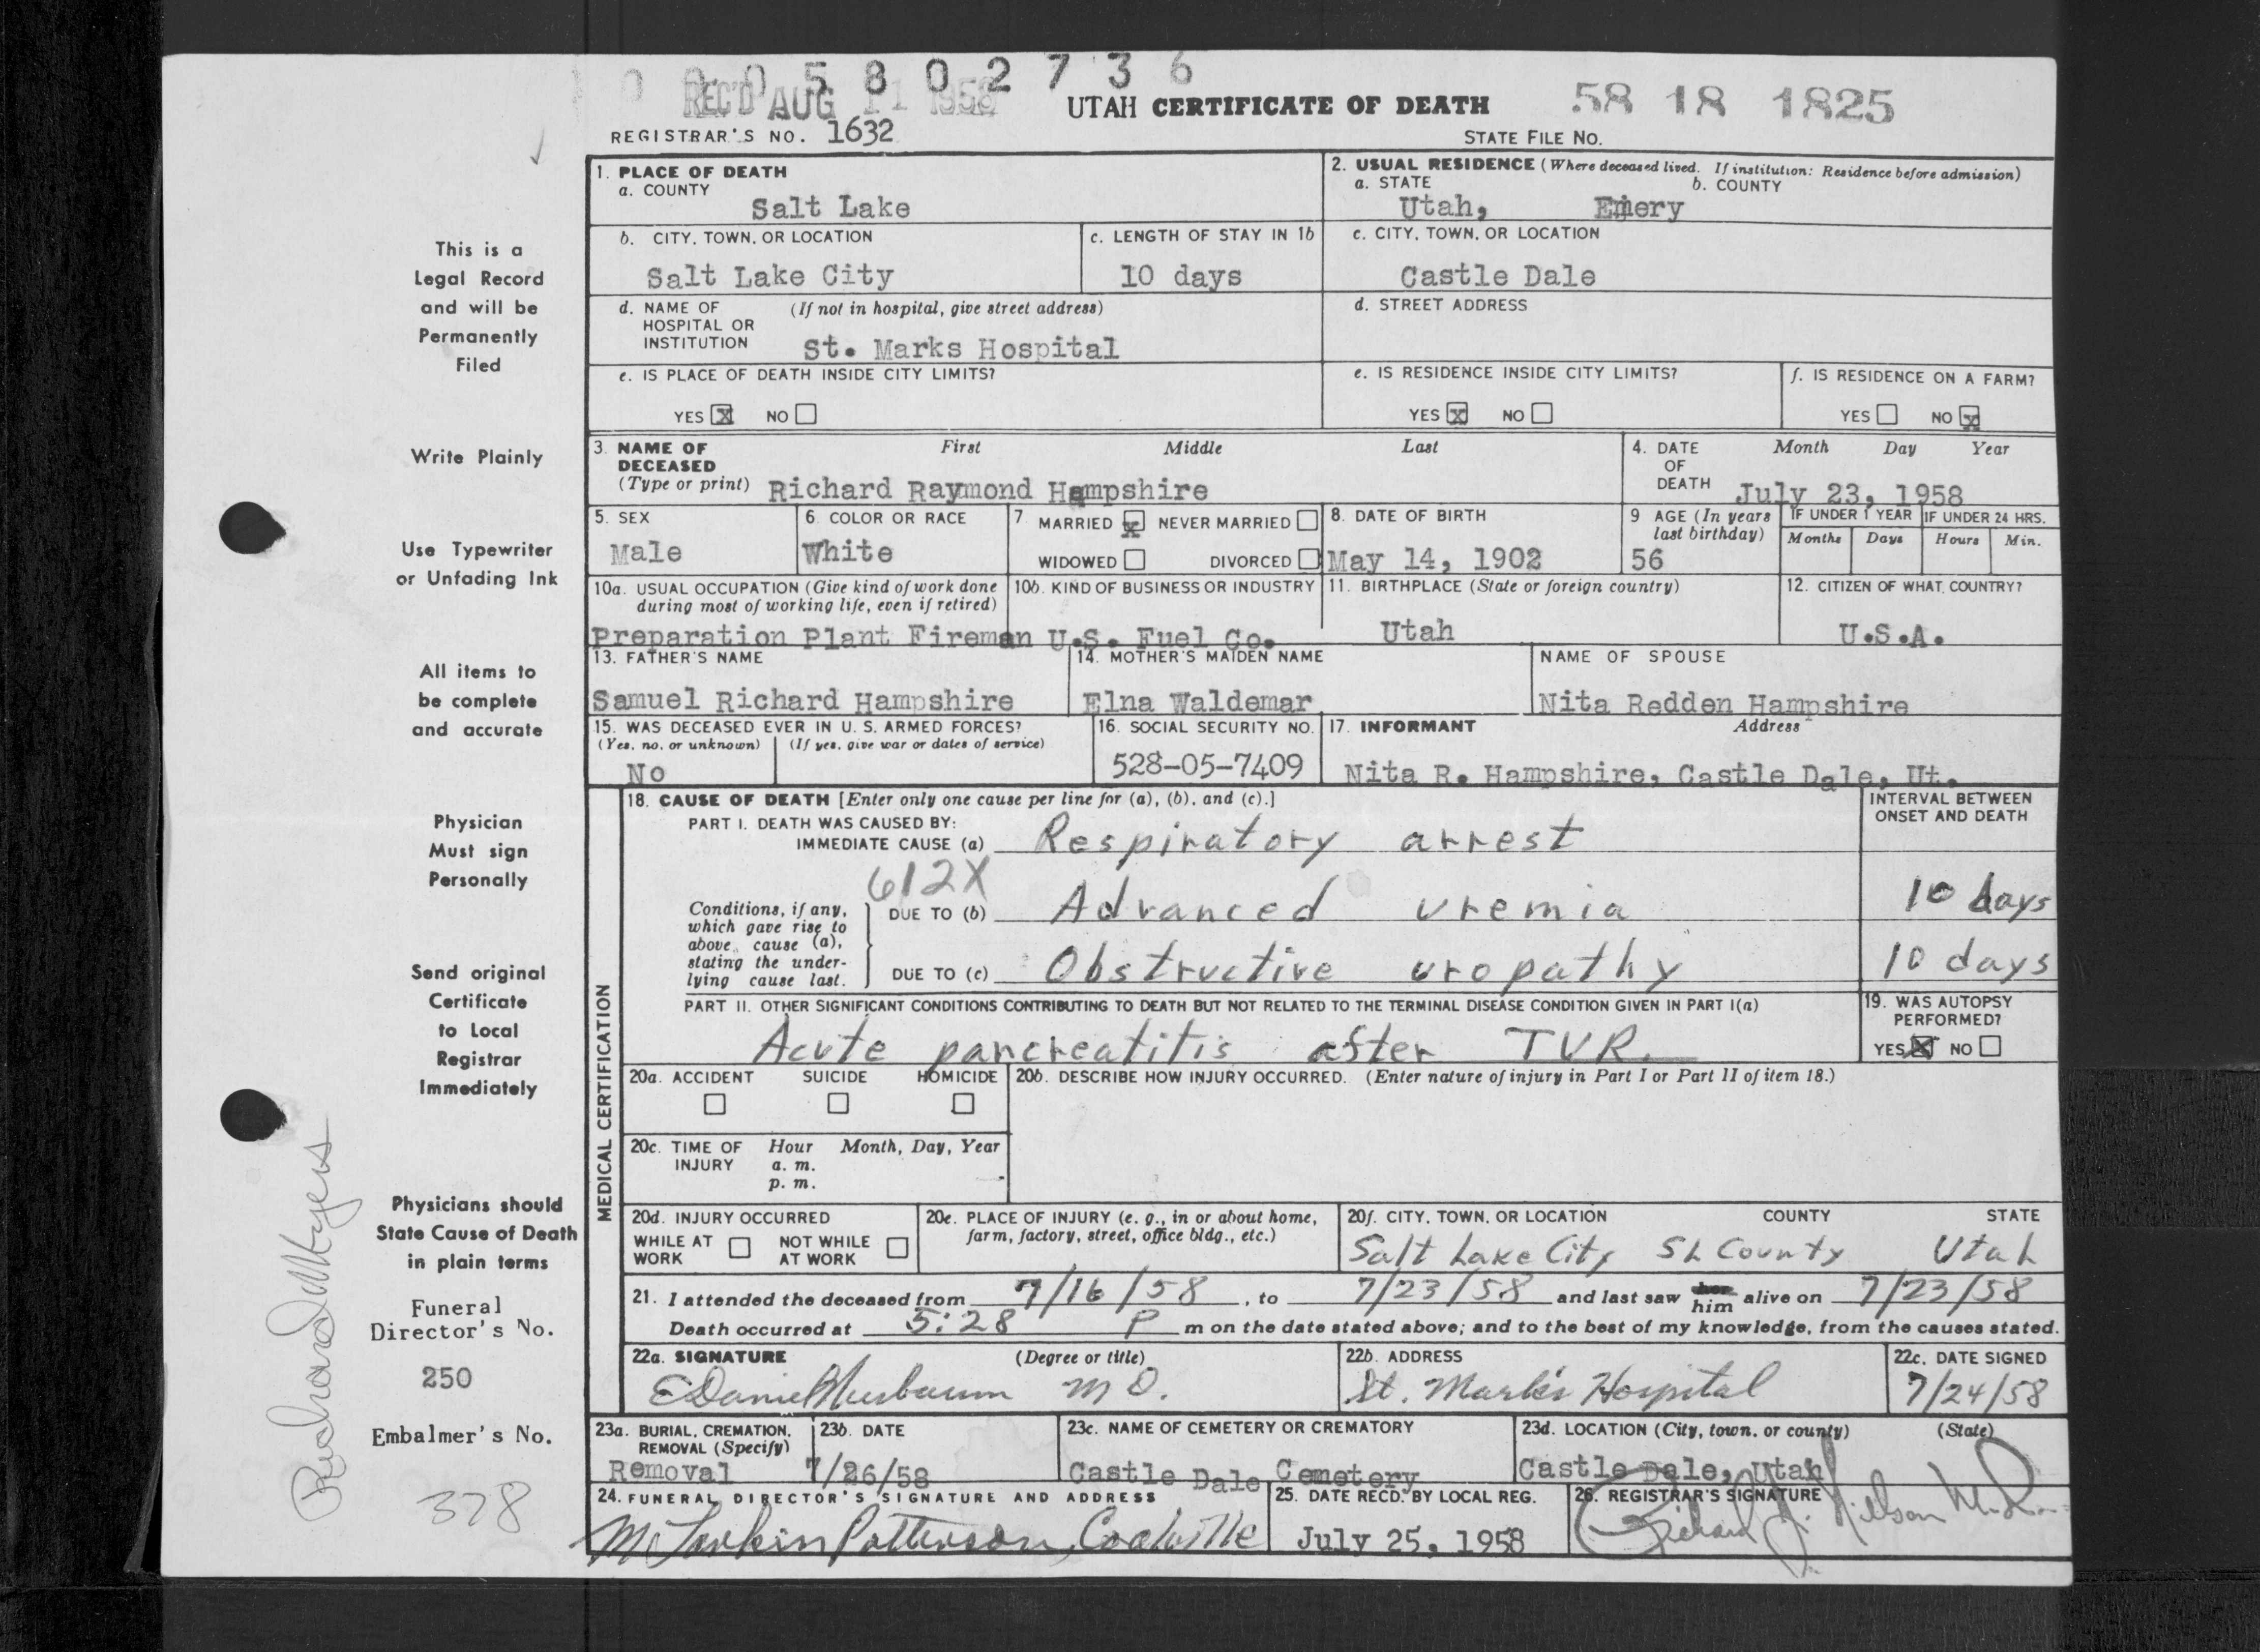 0 0 0 5 8 0 2 7 3 6
REC'D AUG 11 1958
UTAH CERTIFICATE OF DEATH
58 18 1825
REGISTRAR'S NO. 1632
STATE FILE NO.
1. PLACE OF DEATH
a. COUNTY
Salt Lake
2. USUAL RESIDENCE (Where deceased lived. If institution: Residence before admission)
a. STATE b. COUNTY
Utah, Emery
b. CITY, TOWN, OR LOCATION
Salt Lake City
c. LENGTH OF STAY IN 1b
10 days
c. CITY, TOWN, OR LOCATION
Castle Dale
d. NAME OF HOSPITAL OR INSTITUTION (If not in hospital, give street address)
St. Marks Hospital
d. STREET ADDRESS
e. IS PLACE OF DEATH INSIDE CITY LIMITS?
YES X NO
e. IS RESIDENCE INSIDE CITY LIMITS?
YES X NO
f. IS RESIDENCE ON A FARM?
YES NO X
3. NAME OF DECEASED (Type or print) First Middle Last
Richard Raymond Hampshire
4. DATE OF DEATH Month Day Year
July 23, 1958
5. SEX
Male
6. COLOR OR RACE
White
7. MARRIED X NEVER MARRIED
WIDOWED DIVORCED
8. DATE OF BIRTH
May 14, 1902
9 AGE (In years last birthday)
56
IF UNDER 1 YEAR IF UNDER 24 HRS.
Months Days Hours Min.
10a. USUAL OCCUPATION (Give kind of work done during most of working life, even if retired)
Preparation Plant Fireman
10b. KIND OF BUSINESS OR INDUSTRY
U.S. Fuel Co.
11. BIRTHPLACE (State or foreign country)
Utah
12. CITIZEN OF WHAT COUNTRY?
U.S.A.
13. FATHER'S NAME
Samuel Richard Hampshire
14. MOTHER'S MAIDEN NAME
Elna Waldemar
NAME OF SPOUSE
Nita Redden Hampshire
15. WAS DECEASED EVER IN U. S. ARMED FORCES?
(Yes, no, or unknown) (If yes, give war or dates of service)
No
16. SOCIAL SECURITY NO.
528-05-7409
17. INFORMANT Address
Nita R. Hampshire, Castle Dale, Ut.
MEDICAL CERTIFICATION
18. CAUSE OF DEATH [Enter only one cause per line for (a), (b), and (c).]
INTERVAL BETWEEN ONSET AND DEATH
PART I. DEATH WAS CAUSED BY:
IMMEDIATE CAUSE (a) Respiratory arrest
612X
Conditions, if any, which gave rise to above cause (a), stating the underlying cause last.
DUE TO (b) Advanced uremia 10 days
DUE TO (c) Obstructive uropathy 10 days
PART II. OTHER SIGNIFICANT CONDITIONS CONTRIBUTING TO DEATH BUT NOT RELATED TO THE TERMINAL DISEASE CONDITION GIVEN IN PART I(a)
Acute pancreatitis after TUR.
19. WAS AUTOPSY PERFORMED?
YES X NO
20a. ACCIDENT SUICIDE HOMICIDE
20b. DESCRIBE HOW INJURY OCCURRED. (Enter nature of injury in Part I or Part II of item 18.)
20c. TIME OF INJURY Hour Month, Day, Year
a. m.
p. m.
20d. INJURY OCCURRED
WHILE AT WORK NOT WHILE AT WORK
20e. PLACE OF INJURY (e. g., in or about home, farm, factory, street, office bldg., etc.)
20f. CITY, TOWN, OR LOCATION COUNTY STATE
Salt Lake City SL County Utah
21. I attended the deceased from 7/16/58, to 7/23/58 and last saw her him alive on 7/23/58
Death occurred at 5:28 P m on the date stated above; and to the best of my knowledge, from the causes stated.
22a. SIGNATURE (Degree or title)
E Daniel Nusbaum M D.
22b. ADDRESS
St. Mark's Hospital
22c. DATE SIGNED
7/24/58
23a. BURIAL, CREMATION, REMOVAL (Specify)
Removal
23b. DATE
7/26/58
23c. NAME OF CEMETERY OR CREMATORY
Castle Dale Cemetery
23d. LOCATION (City, town, or county) (State)
Castle Dale, Utah
24. FUNERAL DIRECTOR'S SIGNATURE AND ADDRESS
M Larkin Patterson, Coalville
25. DATE RECD. BY LOCAL REG.
July 25, 1958
26. REGISTRAR'S SIGNATURE
Richard J. Nilson M.D.
This is a
Legal Record
and will be
Permanently
Filed
Write Plainly
Use Typewriter
or Unfading Ink
All items to
be complete
and accurate
Physician
Must sign
Personally
Send original
Certificate
to Local
Registrar
Immediately
Physicians should
State Cause of Death
in plain terms
Funeral
Director's No.
250
Embalmer's No.
378
Richard